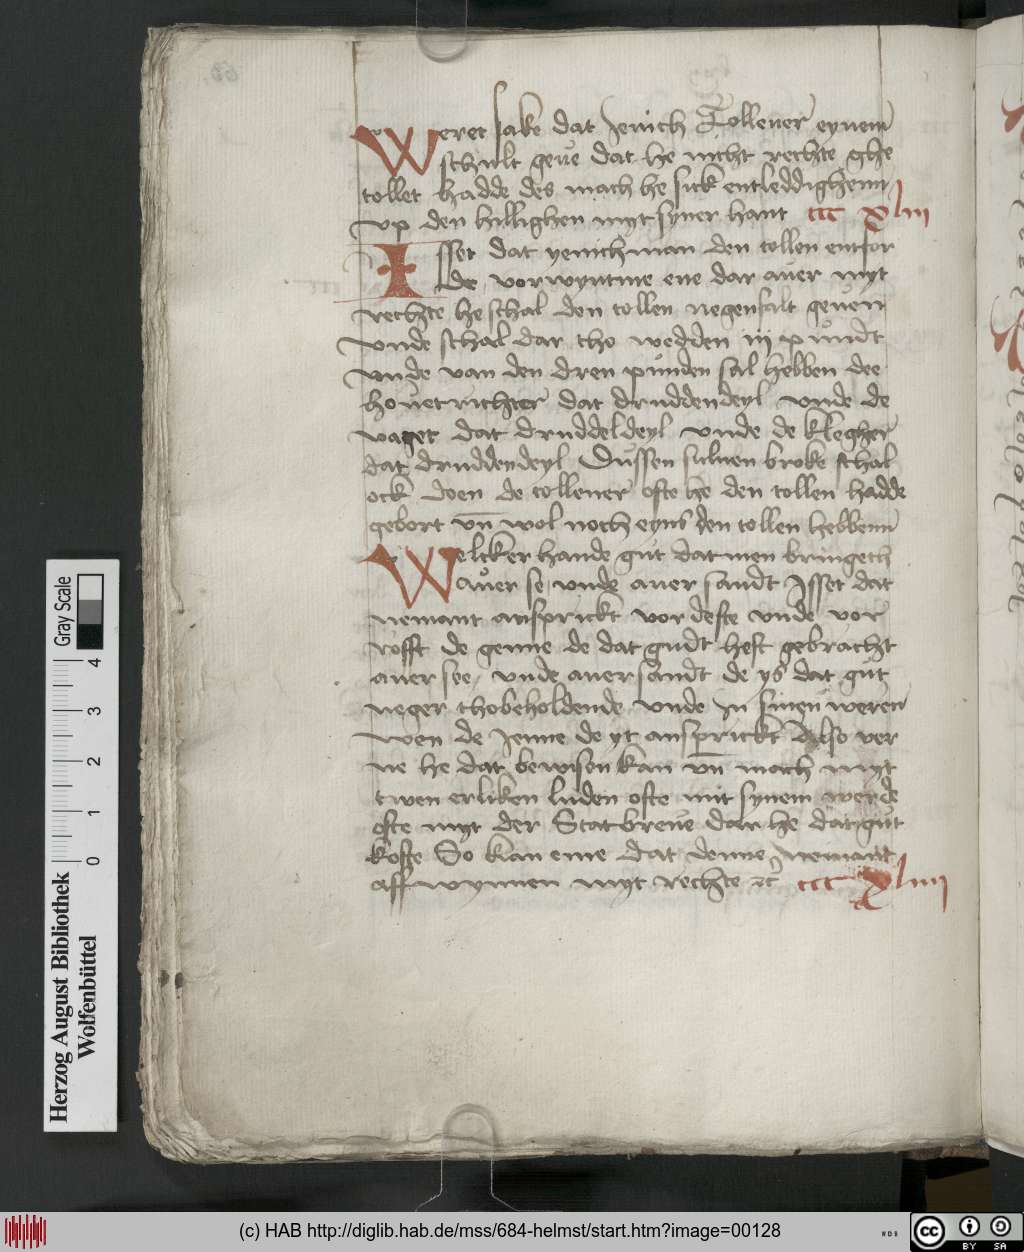 Weret sake dat Jenich Tollener eynem
schult geue dat he nicht rechte ghe
tollet hadde des mach he sick entleddighenn
vp den hillighen myt syner hant ccc xliii
Isset dat yenich man den tollen entfor
de vorwyntme ene dar auer myt
rechte he schal den tollen negenfalt geuen
vnde schal dar tho wedden iij pundt
vnde van den dren punden sal hebben dee
houetrichter dat druddendeyl vnde de
vaget dat druddeldeyl vnde de klegher
dat druddendeyl Dussen suluen broke schal
ock doen de tollener ofte he den tollen hadde
gebort vn wol noch eyns den tollen hebbenn
Welcker hande gut dat men bringeth
auer se vnde auer sandt Isset dat
nemant ansprickt vordeste vnde vor
rofft de genne de dat gudt heft gebracht
auer see vnde auer sandt de ys dat gut
neger thobeholdende vnde In sinen weren
wen de Jenne de yt ansprickt Also ver
ne he dat bewisen kan vn mach myt
twen erliken luden ofte mit synem werde
ofte myt der Stat breue dar he dat gut
kofte So kan eme dat denne nemant
aff wynnen myt rechte zc ccc Xliiii
Herzog August Bibliothek
Wolfenbüttel
0 1 2 3 4
Gray Scale
(c) HAB http://diglib.hab.de/mss/684-helmst/start.htm?image=00128
WDB
cc BY SA